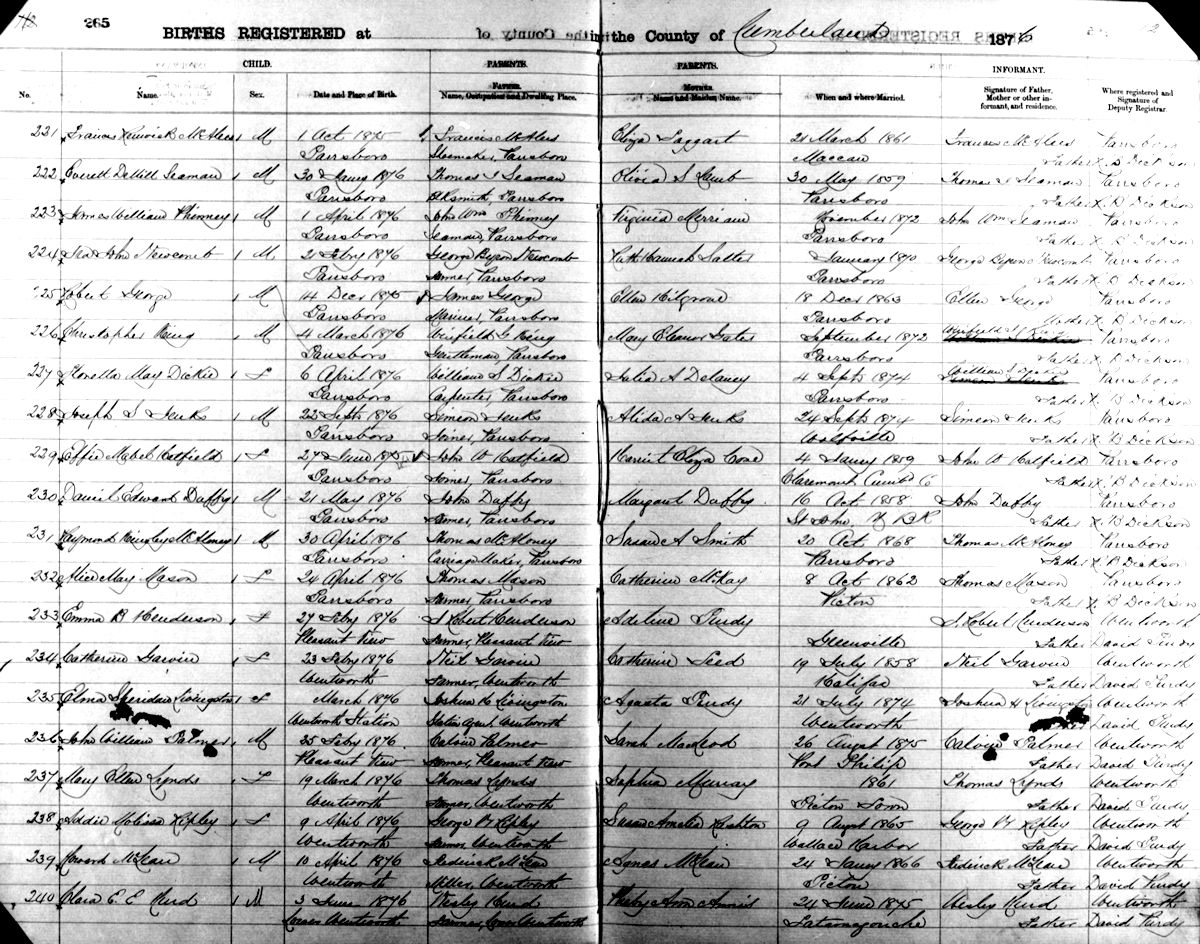 265
BIRTHS REGISTERED at in the County of Cumberland 1876
CHILD. PARENTS. PARENTS. INFORMANT.
No. Name. Sex. Date and Place of Birth. Father. Name, Occupation and Dwelling Place. Mother. Name and Maiden Name. When and where Married. Signature of Father, Mother or other informant, and residence. Where registered and Signature of Deputy Registrar.
221 Francis M 1 Oct 1875 Francis Eliza Taggart 21 March 1861 Francis Parrsboro
Parrsboro Shoemaker, Parrsboro Maccan Father Dickson
222 Everett Seaman M 30 1876 Thomas Seaman Olivia S 30 May 1859 Thomas Seaman Parrsboro
Parrsboro Blksmith, Parrsboro Parrsboro Father Dickson
223 James William Phinney M 1 April 1876 John Wm Phinney Virginia Merriam November 1872 John Wm Seaman Parrsboro
Parrsboro Seaman, Parrsboro Parrsboro Father Dickson
224 John Newcomb M 2 Feby 1876 George Byron Newcomb Hannah Salter January 1870 George Byron Newcomb Parrsboro
Parrsboro Farmer, Parrsboro Parrsboro Father Dickson
225 Robert George M 14 Decr 1875 James George Ellen 18 Decr 1863 Ellen George Parrsboro
Parrsboro Mariner, Parrsboro Parrsboro Mother Dickson
226 Christopher King M 4 March 1876 Winfield King Mary Eleanor September 1872 Winfield King Parrsboro
Parrsboro Gentleman, Parrsboro Parrsboro Father Dickson
227 May Dickie F 6 April 1876 William S Dickie Julia A Delaney 4 Septr 1874 William Parrsboro
Parrsboro Carpenter, Parrsboro Parrsboro Father Dickson
228 Joseph S Jenks M 22 Septr 1876 Simeon Jenks Alida A Jenks 24 Septr 1874 Simeon Jenks Parrsboro
Parrsboro Farmer, Parrsboro Wolfville Father Dickson
229 Effie Mabel Hatfield F 27 June 1875 John W Hatfield Harriet Eliza 4 1859 John W Hatfield Parrsboro
Parrsboro Farmer, Parrsboro Claremont Father Dickson
230 Daniel Edward Duffy M 21 May 1876 John Duffy Margaret Duffy 16 Oct 1858 John Duffy Parrsboro
Parrsboro Farmer, Parrsboro St John, N BK Father Dickson
231 Raymond McAloney M 30 April 1876 Thomas McAloney Susan A Smith 20 Oct 1868 Thomas McAloney Parrsboro
Parrsboro Carriage Maker, Parrsboro Parrsboro Father Dickson
232 Alice May Mason F 24 April 1876 Thomas Mason Catherine McKay 8 Oct 1862 Thomas Mason Parrsboro
Parrsboro Farmer, Parrsboro Pictou Father Dickson
233 Emma Henderson F 27 Feby 1876 Robert Henderson Adeline Purdy Robert Henderson Wentworth
Pleasant View Farmer, Pleasant View Greenville Father David Purdy
234 Catherine Garvin F 23 Feby 1876 Neil Garvin Catherine Seed 19 July 1858 Neil Garvin Wentworth
Wentworth Farmer, Wentworth Halifax Father David Purdy
235 Sheridan Livingston F March 1876 Joshua H Livingston Agasta Purdy 21 July 1874 Joshua H Livingston Wentworth
Wentworth Station Station Agent, Wentworth Wentworth David Purdy
236 John William Palmer M 25 Feby 1876 Calvin Palmer Sarah MacLeod 26 August 1875 Calvin Palmer Wentworth
Pleasant View Farmer, Pleasant View Port Philip Father David Purdy
237 Mary Ellen Lynds F 19 March 1876 Thomas Lynds Sophia Murray 1861 Thomas Lynds Wentworth
Wentworth Farmer, Wentworth Pictou Town Father David Purdy
238 Addie Melissa Ripley F 9 April 1876 George Ripley Susan Amelia 9 August 1865 George Ripley Wentworth
Wentworth Farmer, Wentworth Wallace Harbor Father David Purdy
239 Howard McLean M 10 April 1876 Rederick McLean Agnes McLean 24 1866 Rederick McLean Wentworth
Wentworth Miller, Wentworth Pictou Father David Purdy
240 Clara E. E. Hurd M 3 June 1876 Wesley Hurd Ann Annis 24 June 1875 Wesley Hurd Wentworth
Lower Wentworth Farmer, Lower Wentworth Tatamagouche Father David Purdy